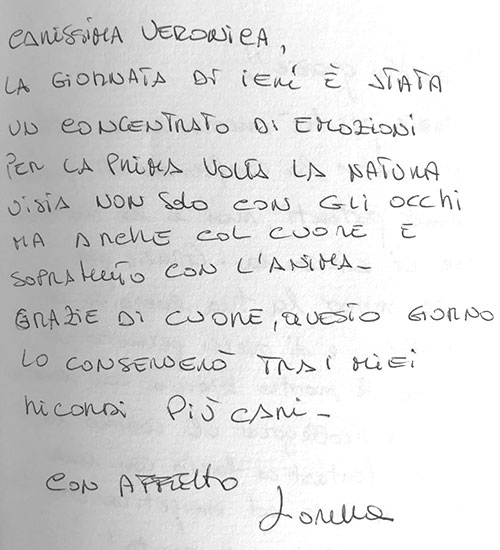 CARISSIMA VERONICA,
LA GIORNATA DI IERI È STATA
UN CONCENTRATO DI EMOZIONI
PER LA PRIMA VOLTA LA NATURA
VISTA NON SOLO CON GLI OCCHI
MA ANCHE COL CUORE E
SOPRATTUTTO CON L'ANIMA-
GRAZIE DI CUORE, QUESTO GIORNO
LO CONSERVERÒ TRA I MIEI
RICORDI PIÙ CARI-
CON AFFETTO